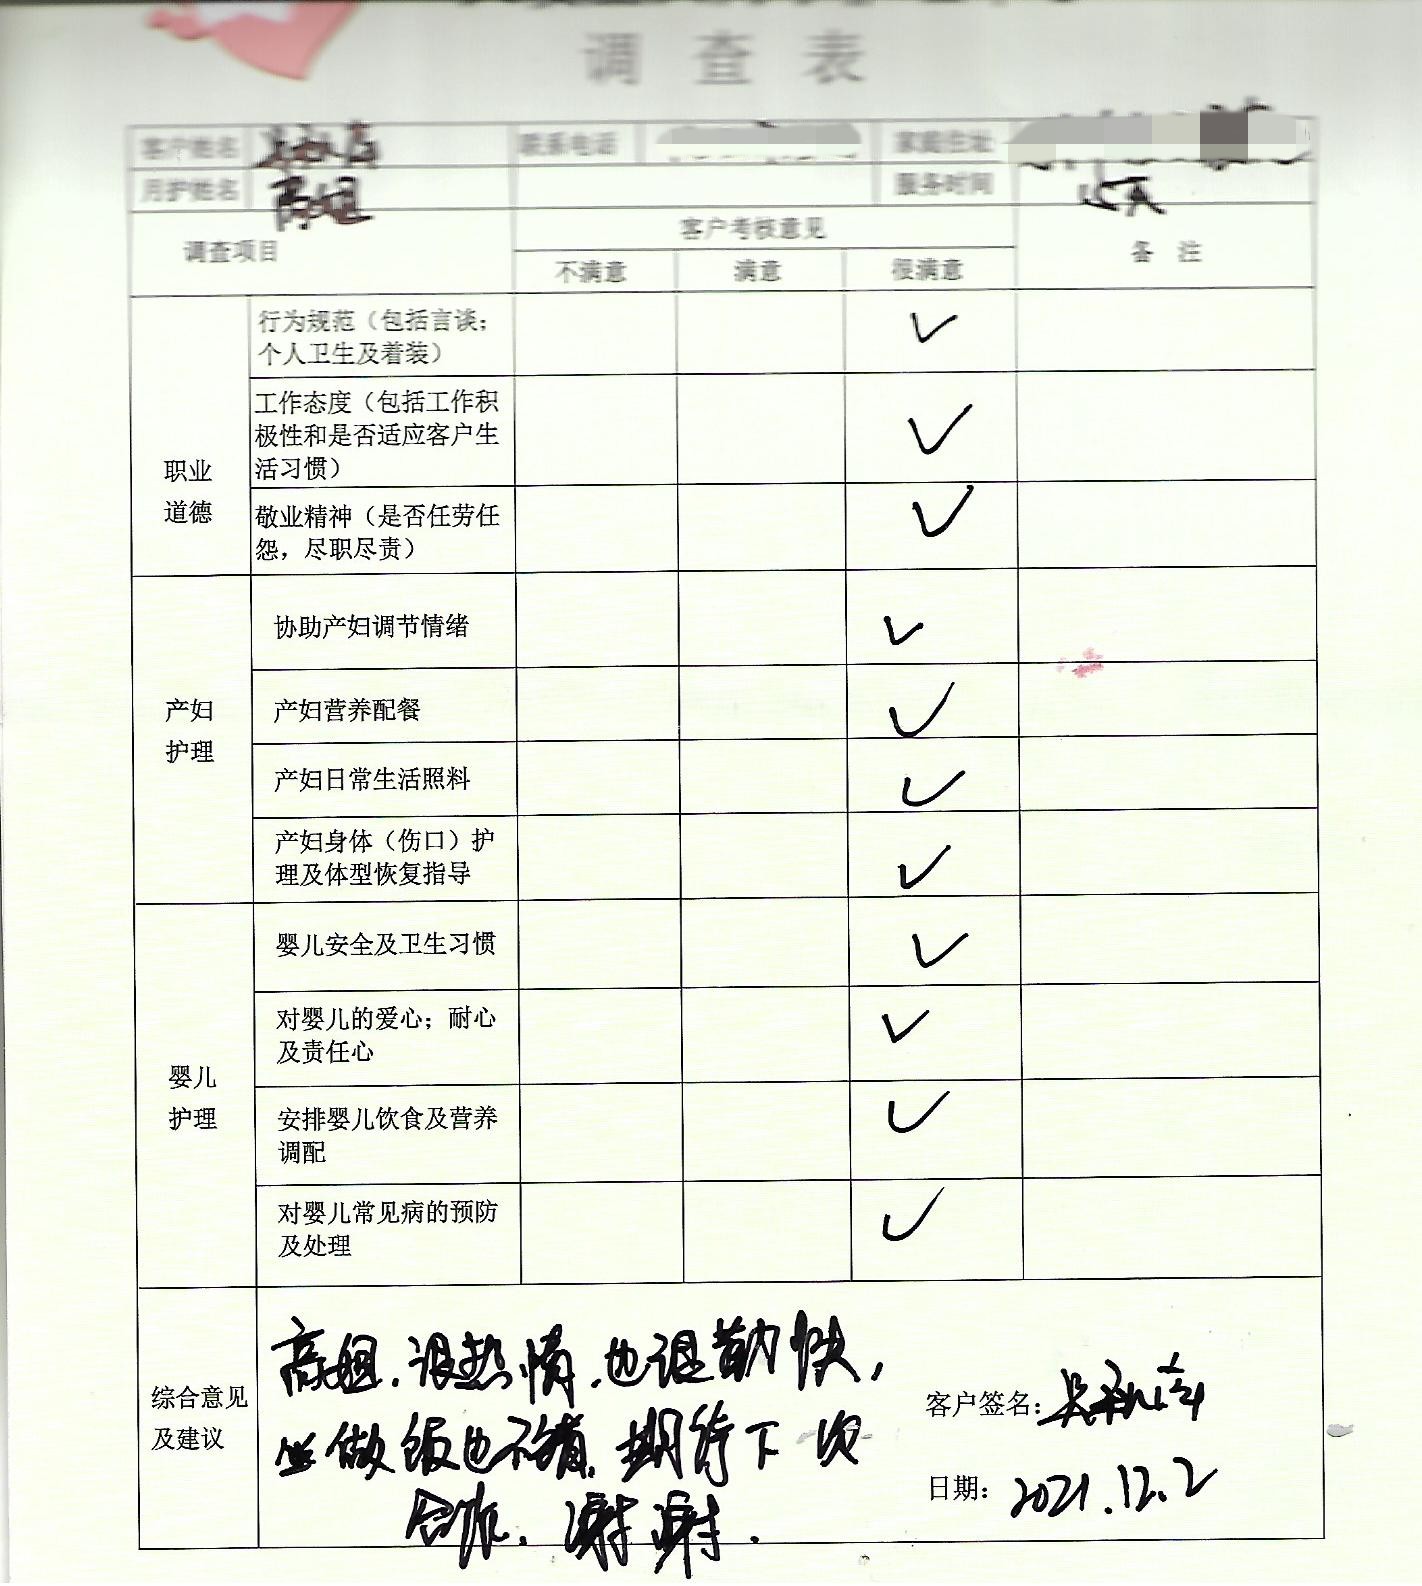 调查表
客户姓名 联系电话 家庭住址
月护姓名 高姐 服务时间 15天
调查项目 客户考核意见 备注
不满意 满意 很满意
职业
道德
行为规范（包括言谈；
个人卫生及着装） ✓
工作态度（包括工作积
极性和是否适应客户生
活习惯） ✓
敬业精神（是否任劳任
怨，尽职尽责） ✓
产妇
护理
协助产妇调节情绪 ✓
产妇营养配餐 ✓
产妇日常生活照料 ✓
产妇身体（伤口）护
理及体型恢复指导 ✓
婴儿
护理
婴儿安全及卫生习惯 ✓
对婴儿的爱心；耐心
及责任心 ✓
安排婴儿饮食及营养
调配 ✓
对婴儿常见病的预防
及处理 ✓
综合意见
及建议
高姐.很热情.也很勤快，
做饭也不错.期待下次
合作.谢谢.
客户签名：
日期：2021.12.2